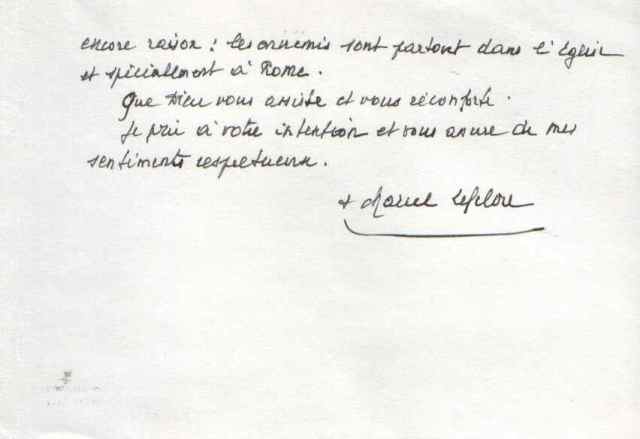 encore raison : les ennemis sont partout dans l'Eglise
et spécialement à Rome.
Que Dieu vous assiste et vous réconforte.
Je prie à votre intention et vous assure de mes
sentiments respectueux.
+ Marcel Lefebvre